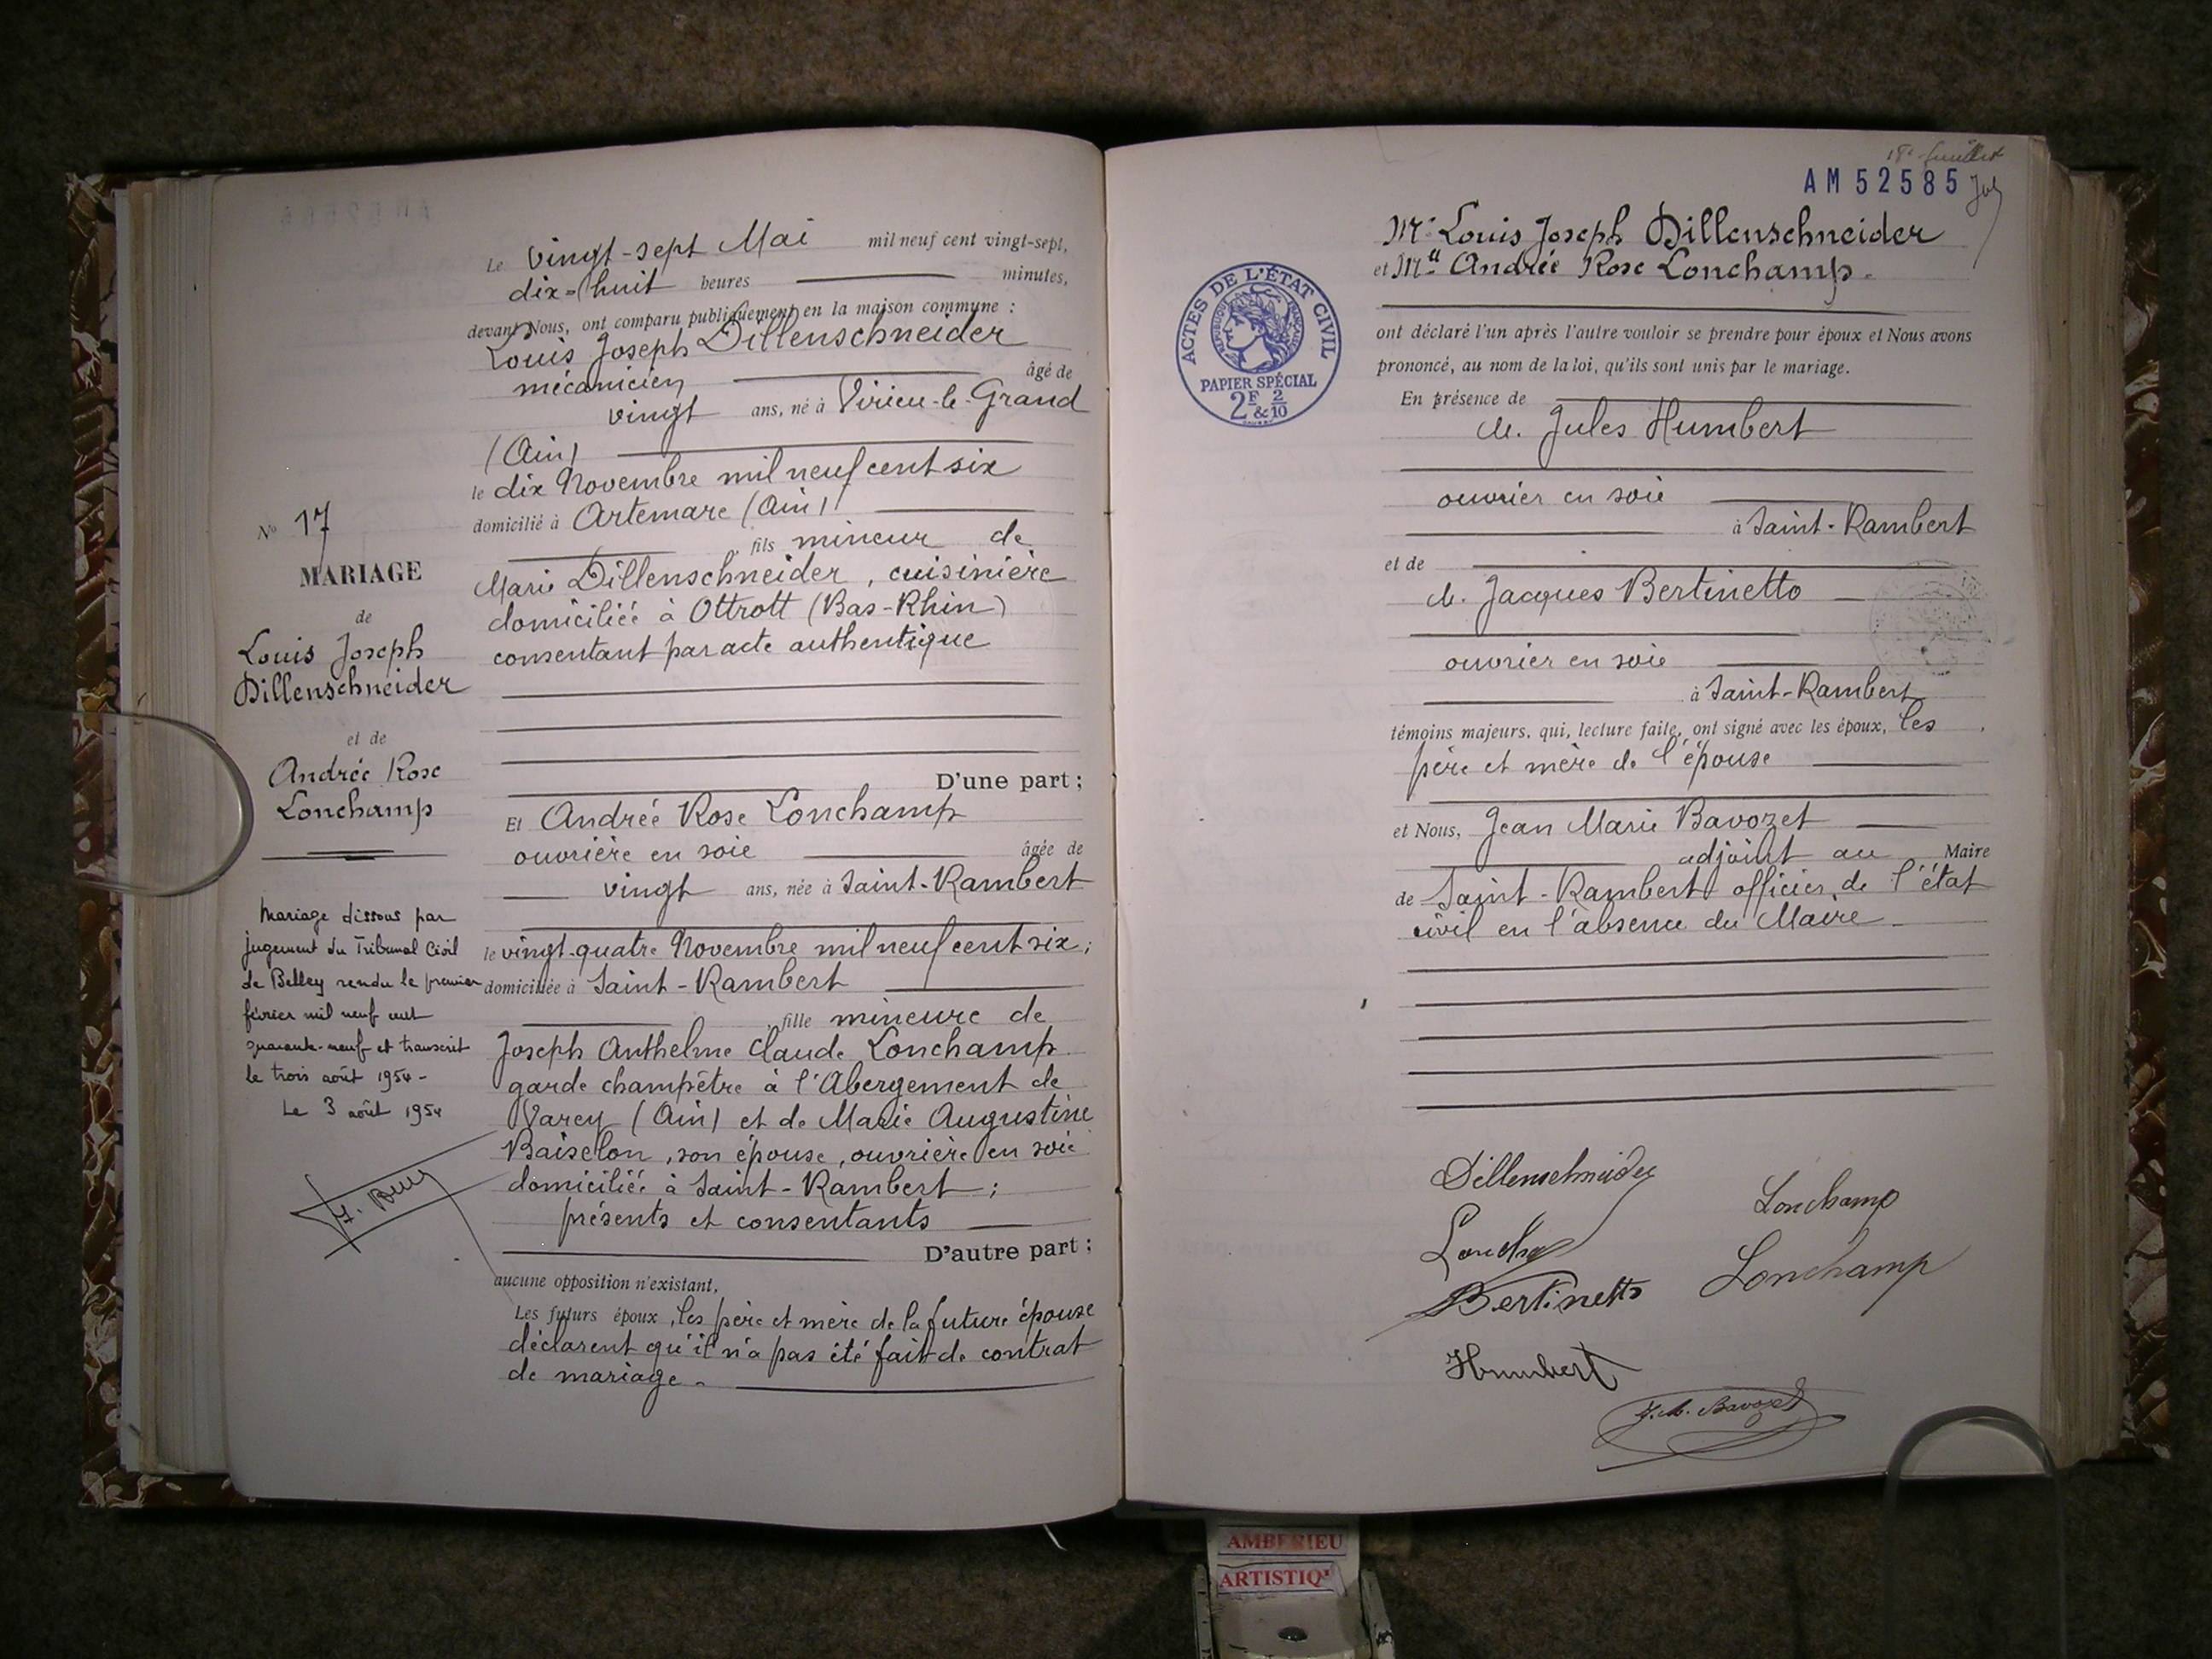 N° 17
MARIAGE
de
Louis Joseph
Dillenschneider
et de
Andrée Rose
Lonchamp
Mariage dissous par
jugement du Tribunal Civil
de Belley rendu le premier
février mil neuf cent
quarante-neuf et transcrit
le trois août 1954 -
Le 3 août 1954
Le vingt-sept Mai mil neuf cent vingt-sept,
dix-huit heures minutes,
devant Nous, ont comparu publiquement en la maison commune :
Louis Joseph Dillenschneider
mécanicien âgé de
vingt ans, né à Virieu-le-Grand
(Ain)
le dix Novembre mil neuf cent six
domicilié à Artemare (Ain)
, fils mineur de
Marie Dillenschneider, cuisinière
domiciliée à Ottrott (Bas-Rhin)
consentant par acte authentique
D'une part ;
Et Andrée Rose Lonchamp
ouvrière en soie âgée de
vingt ans, née à Saint-Rambert
le vingt-quatre Novembre mil neuf cent six ;
domiciliée à Saint-Rambert
, fille mineure de
Joseph Anthelme Claude Lonchamp
garde champêtre à l'Abergement de
Varey (Ain) et de Marie Augustine
Baiselon, son épouse, ouvrière en soie
domiciliée à Saint-Rambert ;
présents et consentants
D'autre part ;
aucune opposition n'existant,
Les futurs époux, les père et mère de la future épouse
déclarent qu'il n'a pas été fait de contrat
de mariage.
AM 52585
ACTES DE L'ÉTAT CIVIL
RÉPUBLIQUE FRANÇAISE
PAPIER SPÉCIAL
2F & 2/10
Mr Louis Joseph Dillenschneider
et Mlle Andrée Rose Lonchamp.
ont déclaré l'un après l'autre vouloir se prendre pour époux et Nous avons
prononcé, au nom de la loi, qu'ils sont unis par le mariage.
En présence de
M. Jules Humbert
ouvrier en soie
à Saint-Rambert
et de
M. Jacques Bertinetto
ouvrier en soie
à Saint-Rambert
témoins majeurs, qui, lecture faite, ont signé avec les époux, les
père et mère de l'épouse
et Nous, Jean Marie Bavozet
adjoint au Maire
de Saint-Rambert officier de l'état
civil en l'absence du Maire
Dillenschneider
Lonchamp
Lonchamp
Bertinetto
Humbert
J.M. Bavozet
AMBERIEU
ARTISTIQ